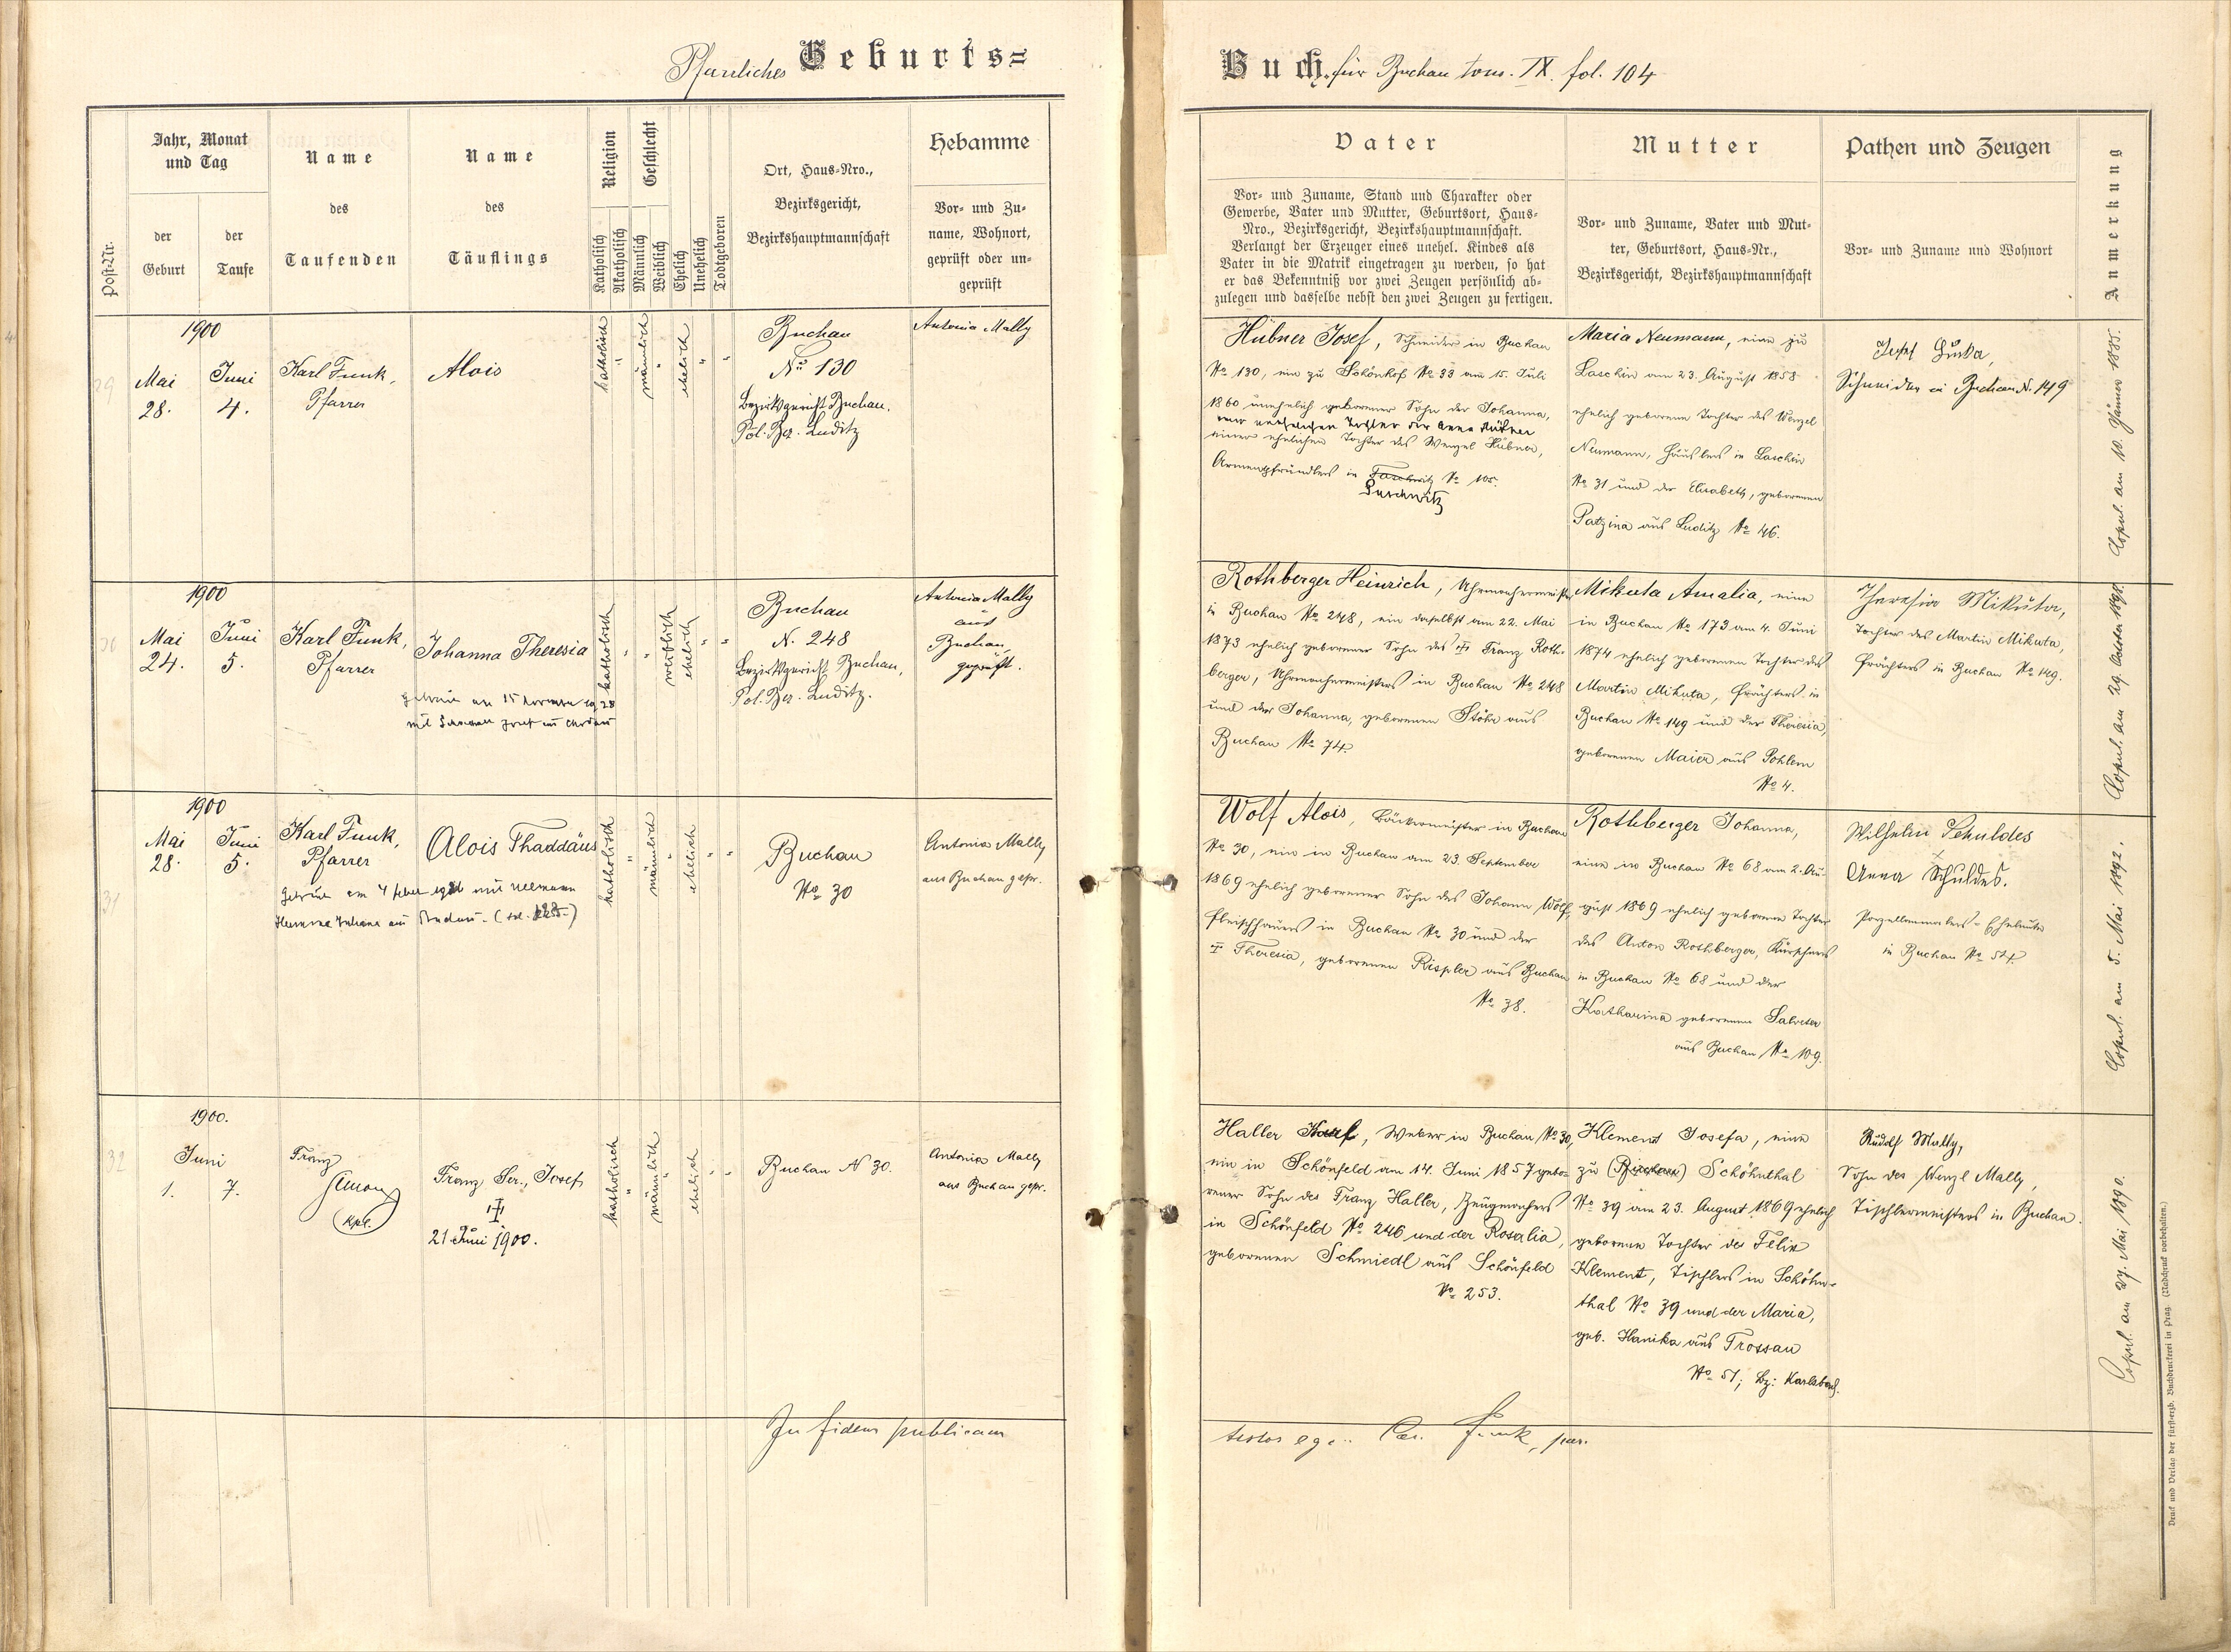 Pfarrliches Geburts=
Buch. für Buchau tom. IX. fol. 104
Post-Nr.
Jahr, Monat
und Tag
der
Geburt
der
Taufe
Name
des
Taufenden
Name
des
Täuflings
Religion
Katholisch
Akatholisch
Geschlecht
Männlich
Weiblich
Ehelich
Unehelich
Todtgeboren
Ort, Haus=Nro.,
Bezirksgericht,
Bezirkshauptmannschaft
Hebamme
Vor= und Zu=
name, Wohnort,
geprüft oder un=
geprüft
Vater
Vor= und Zuname, Stand und Charakter oder
Gewerbe, Vater und Mutter, Geburtsort, Haus=
Nro., Bezirksgericht, Bezirkshauptmannschaft.
Verlangt der Erzeuger eines unehel. Kindes als
Vater in die Matrik eingetragen zu werden, so hat
er das Bekenntniß vor zwei Zeugen persönlich ab=
zulegen und dasselbe nebst den zwei Zeugen zu fertigen.
Mutter
Vor= und Zuname, Vater und Mut=
ter, Geburtsort, Haus=Nr.,
Bezirksgericht, Bezirkshauptmannschaft
Pathen und Zeugen
Vor= und Zuname und Wohnort
Anmerkung
29
1900
Mai
28.
Juni
4.
Karl Funk,
Pfarrer
Alois
katholisch
männlich
ehelich
Buchau
No 130
Bezirksgericht Buchau.
Pol. Bez. Luditz
Antonia Mally
Hübner Josef, Schneider in Buchau
No 130, ein zu Schönhof No 33 am 15. Juli
1860 unehelich geborener Sohn der Johanna,
einer unehelichen Tochter der Anna Hübner
einer ehelichen Tochter des Wenzel Hübner,
Armenpfründlers in No 105.
Luschwitz
Maria Neumann, eine zu
Laschin am 23. August 1858
ehelich geborene Tochter des Wenzel
Neumann, Häuslers in Laschin
No 31 und der Elisabeth, geborenen
Patzina aus Luditz No 46.
Josef
Schneider in Buchau N. 149
Copul. am 10. Jänner 1885.
30
1900
Mai
24.
Juni
5.
Karl Funk,
Pfarrer
Johanna Theresia
getraut am 15 November 1928
mit Josef
katholisch
weiblich
ehelich
Buchau
N. 248
Bezirksgericht Buchau,
Pol. Bez. Luditz.
Antonia Mally
aus
Buchau,
geprüft.
Rothberger Heinrich, Uhrmachermeister
in Buchau No 248, ein daselbst am 22. Mai
1873 ehelich geborener Sohn des Franz Roth-
berger, Uhrmachermeisters in Buchau No 248
und der Johanna, geborenen Stöhr aus
Buchau No 74.
Mikuta Amalia, eine
in Buchau No 173 am 4. Juni
1874 ehelich geborene Tochter des
Martin Mikuta, Frächters in
Buchau No 149 und der Theresia,
geborenen Maier aus Pohlem
No 4.
Theresia Mikuta,
Tochter des Martin Mikuta,
Frächters in Buchau No 149.
Copul. am 29. October 1898.
31
1900
Mai
28.
Juni
5.
Karl Funk,
Pfarrer
Alois Thaddäus
Getraut am 4 mit Ullmann
Juliana aus
katholisch
männlich
ehelich
Buchau
No 30
Antonia Mally
aus Buchau gepr.
Wolf Alois, Bäckermeister in Buchau
No 30, ein in Buchau am 23. September
1869 ehelich geborener Sohn des Johann Wolf,
Fleischhauers in Buchau No 30 und der
Theresia, geborenen Rispler aus Buchau
No 38.
Rothberger Johanna,
eine in Buchau No 68 am 2. Au-
gust 1869 ehelich geborene Tochter
des Anton Rothberger, Kürschners
in Buchau No 68 und der
Katharina geborenen Salveter
aus Buchau No 109.
Wilhelm Schuldes
Anna Schuldes.
Porzellanmalers-Eheleute
in Buchau No 54.
Copul. am 5. Mai 1892.
32
1900.
Juni
1.
7.
Franz
Simon
Kpl.
Franz Ser., Josef
21 Juni 1900.
katholisch
männlich
ehelich
Buchau N 30.
Antonia Mally
aus Buchau gepr.
Haller Josef, Weber in Buchau No 30,
ein in Schönfeld am 14. Juni 1857 gebo-
rener Sohn des Franz Haller, Zeugmachers
in Schönfeld No 246 und der Rosalia,
geborenen Schmiedl aus Schönfeld
No 253.
Klement Josefa, eine
zu (Buchau) Schönthal
No 39 am 23. August 1869 ehelich
geborene Tochter des Felix
Klement, Tischlers in Schön-
thal No 39 und der Maria,
geb. Hanika aus Trossau
No 51; Bz: Karlsbad.
Rudolf Mally,
Sohn des Wenzl Mally,
Tischlermeisters in Buchau.
Copul. am 27. Mai 1890.
In fidem publicam
testor ego: Car. Funk, par.
Druck und Verlag der fürsterzb. Buchdruckerei in Prag. (Nachdruck vorbehalten.)